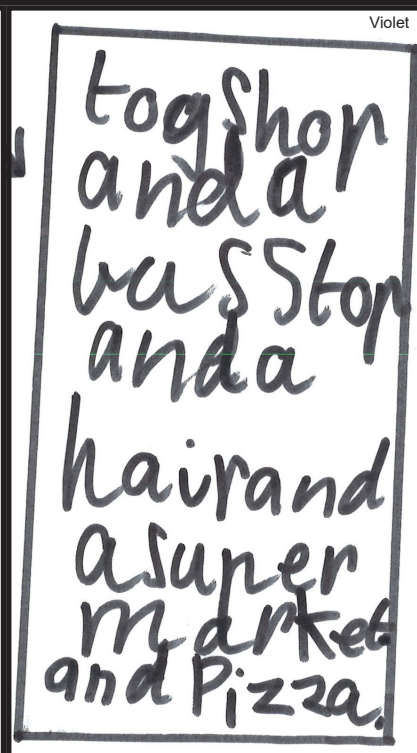 Violet
toyshop
and a
bus Stop
and a
hair and
a super
market
and Pizza.